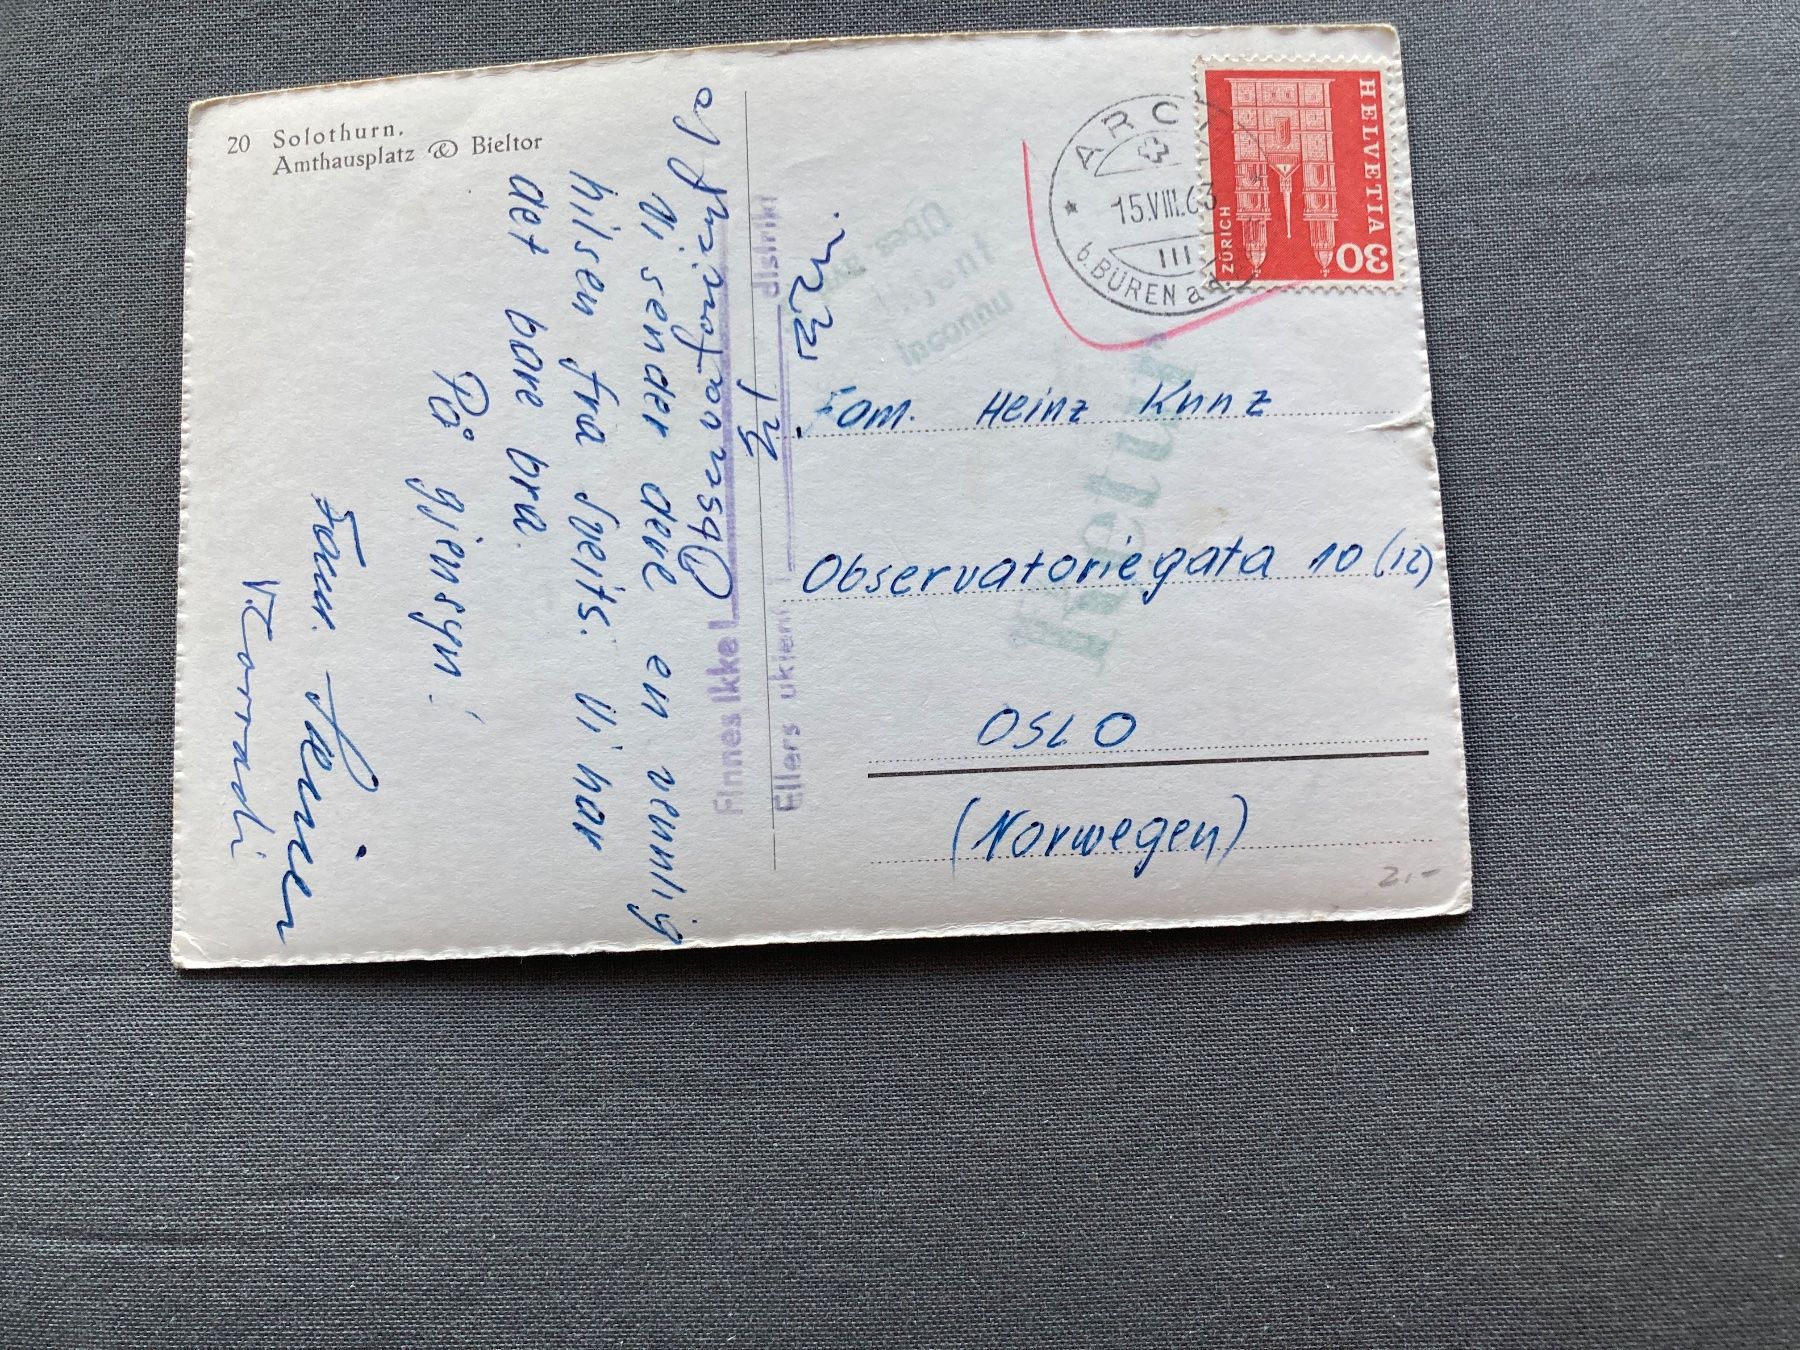 20 Solothurn.
Amthausplatz & Bieltor
Vi sender dere en vennlig
hilsen fra Sveits. Vi har
det bare bra.
På gjensyn!
Fam.
HELVETIA
30
ZÜRICH
ARCH
15.VIII.63
b. BÜREN a.
Fam. Heinz Kunz
Observatoriegata 10 (12)
OSLO
(Norwegen)
Retur
Finnes ikke i Observatoriegt 10
Ellers ukjent i distrikt
2.-